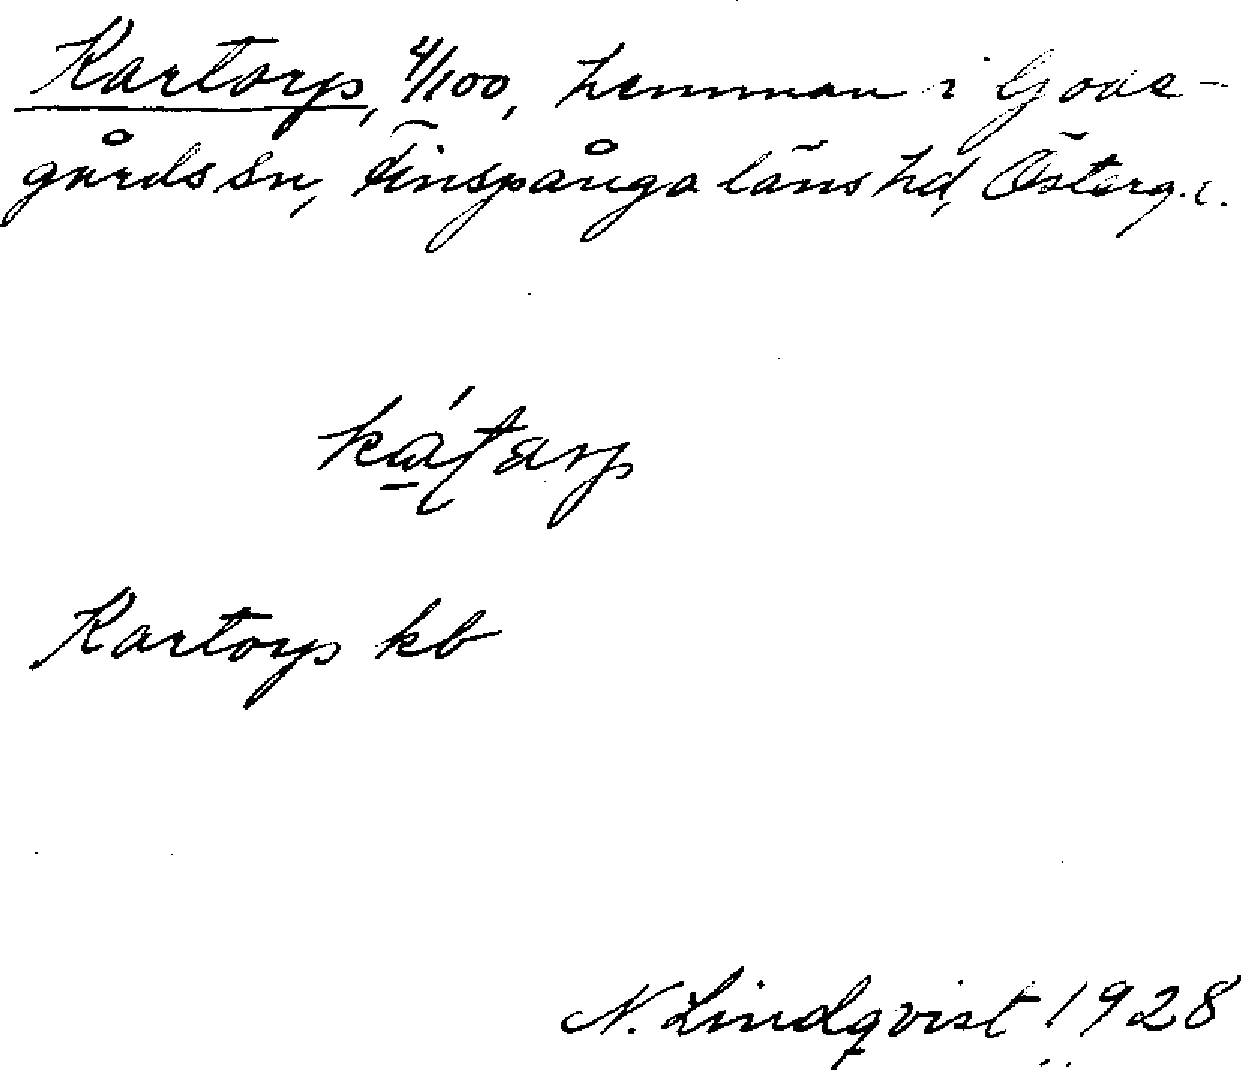 Kartorp, 4/100, hemman i Gods-
gårds sn, Finspånga läns hd, Österg. l.
kát̨arp
Kartorp kb
N. Lindqvist 1928